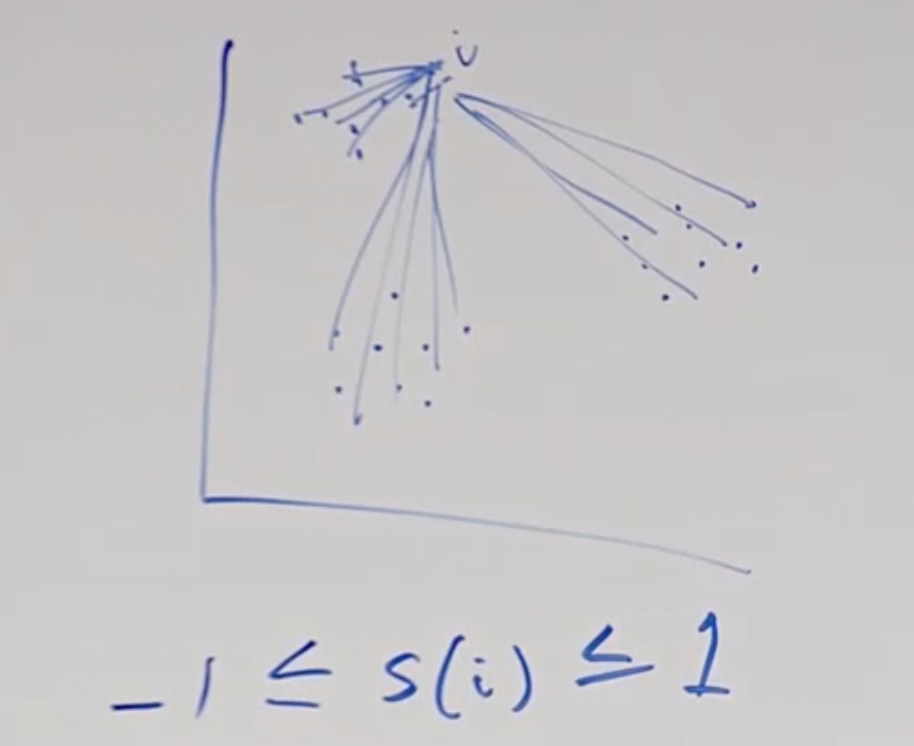 i
-1 ≤ s(i) ≤ 1